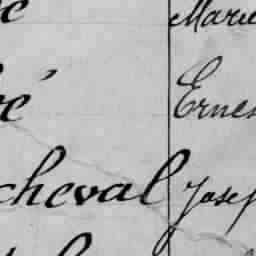 Marie
é Ernes
cheval Josep